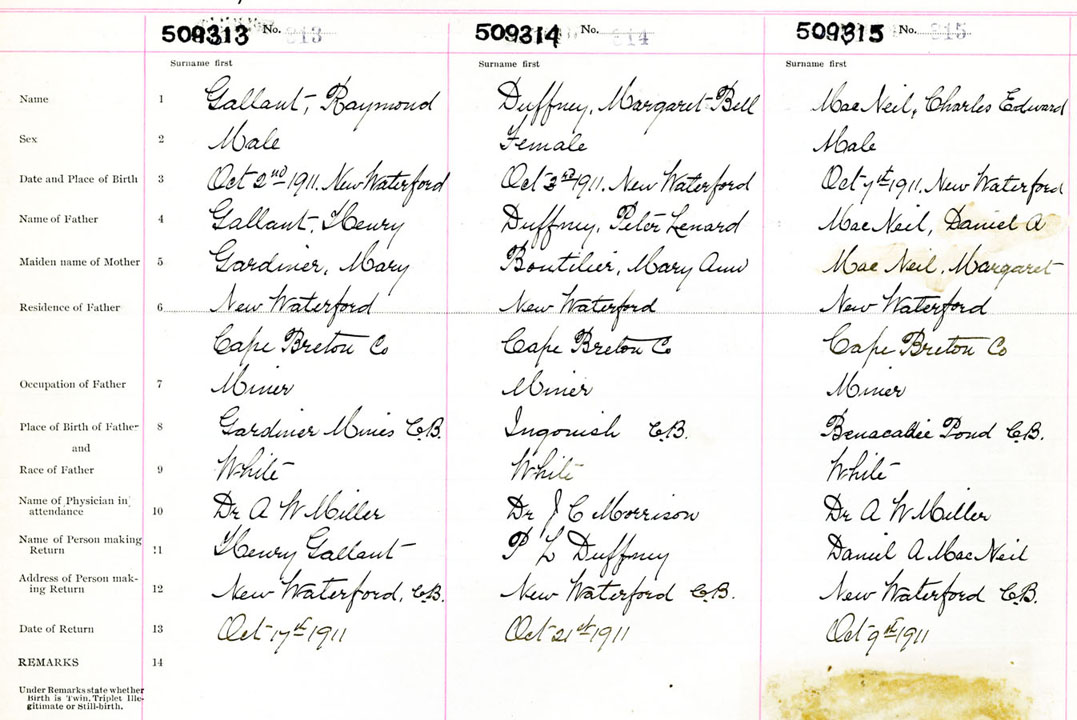 509313 No. 313 509314 No. 314 509315 No. 315
Surname first Surname first Surname first
Name 1 Gallant, Raymond Duffney, Margaret Bell Mac Neil, Charles Edward
Sex 2 Male Female Male
Date and Place of Birth 3 Oct 2nd 1911. New Waterford Oct 3rd 1911. New Waterford Oct 7th 1911. New Waterford
Name of Father 4 Gallant, Henry Duffney, Peter Lenard Mac Neil, Daniel A
Maiden name of Mother 5 Gardiner, Mary Boutilier, Mary Ann Mac Neil, Margaret
Residence of Father 6 New Waterford New Waterford New Waterford
Cape Breton Co Cape Breton Co Cape Breton Co
Occupation of Father 7 Miner Miner Miner
Place of Birth of Father 8 Gardiner Mines C.B. Ingonish C.B. Benacadie Pond C.B.
and
Race of Father 9 White White White
Name of Physician in
attendance 10 Dr A W Miller Dr J C Morrison Dr A W Miller
Name of Person making
Return 11 Henry Gallant P L Duffney Daniel A Mac Neil
Address of Person mak-
ing Return 12 New Waterford, C.B. New Waterford C.B. New Waterford C.B.
Date of Return 13 Oct 17th 1911 Oct 21st 1911 Oct 9th 1911
REMARKS 14
Under Remarks state whether
Birth is Twin, Triplet Ille-
gitimate or Still-birth.